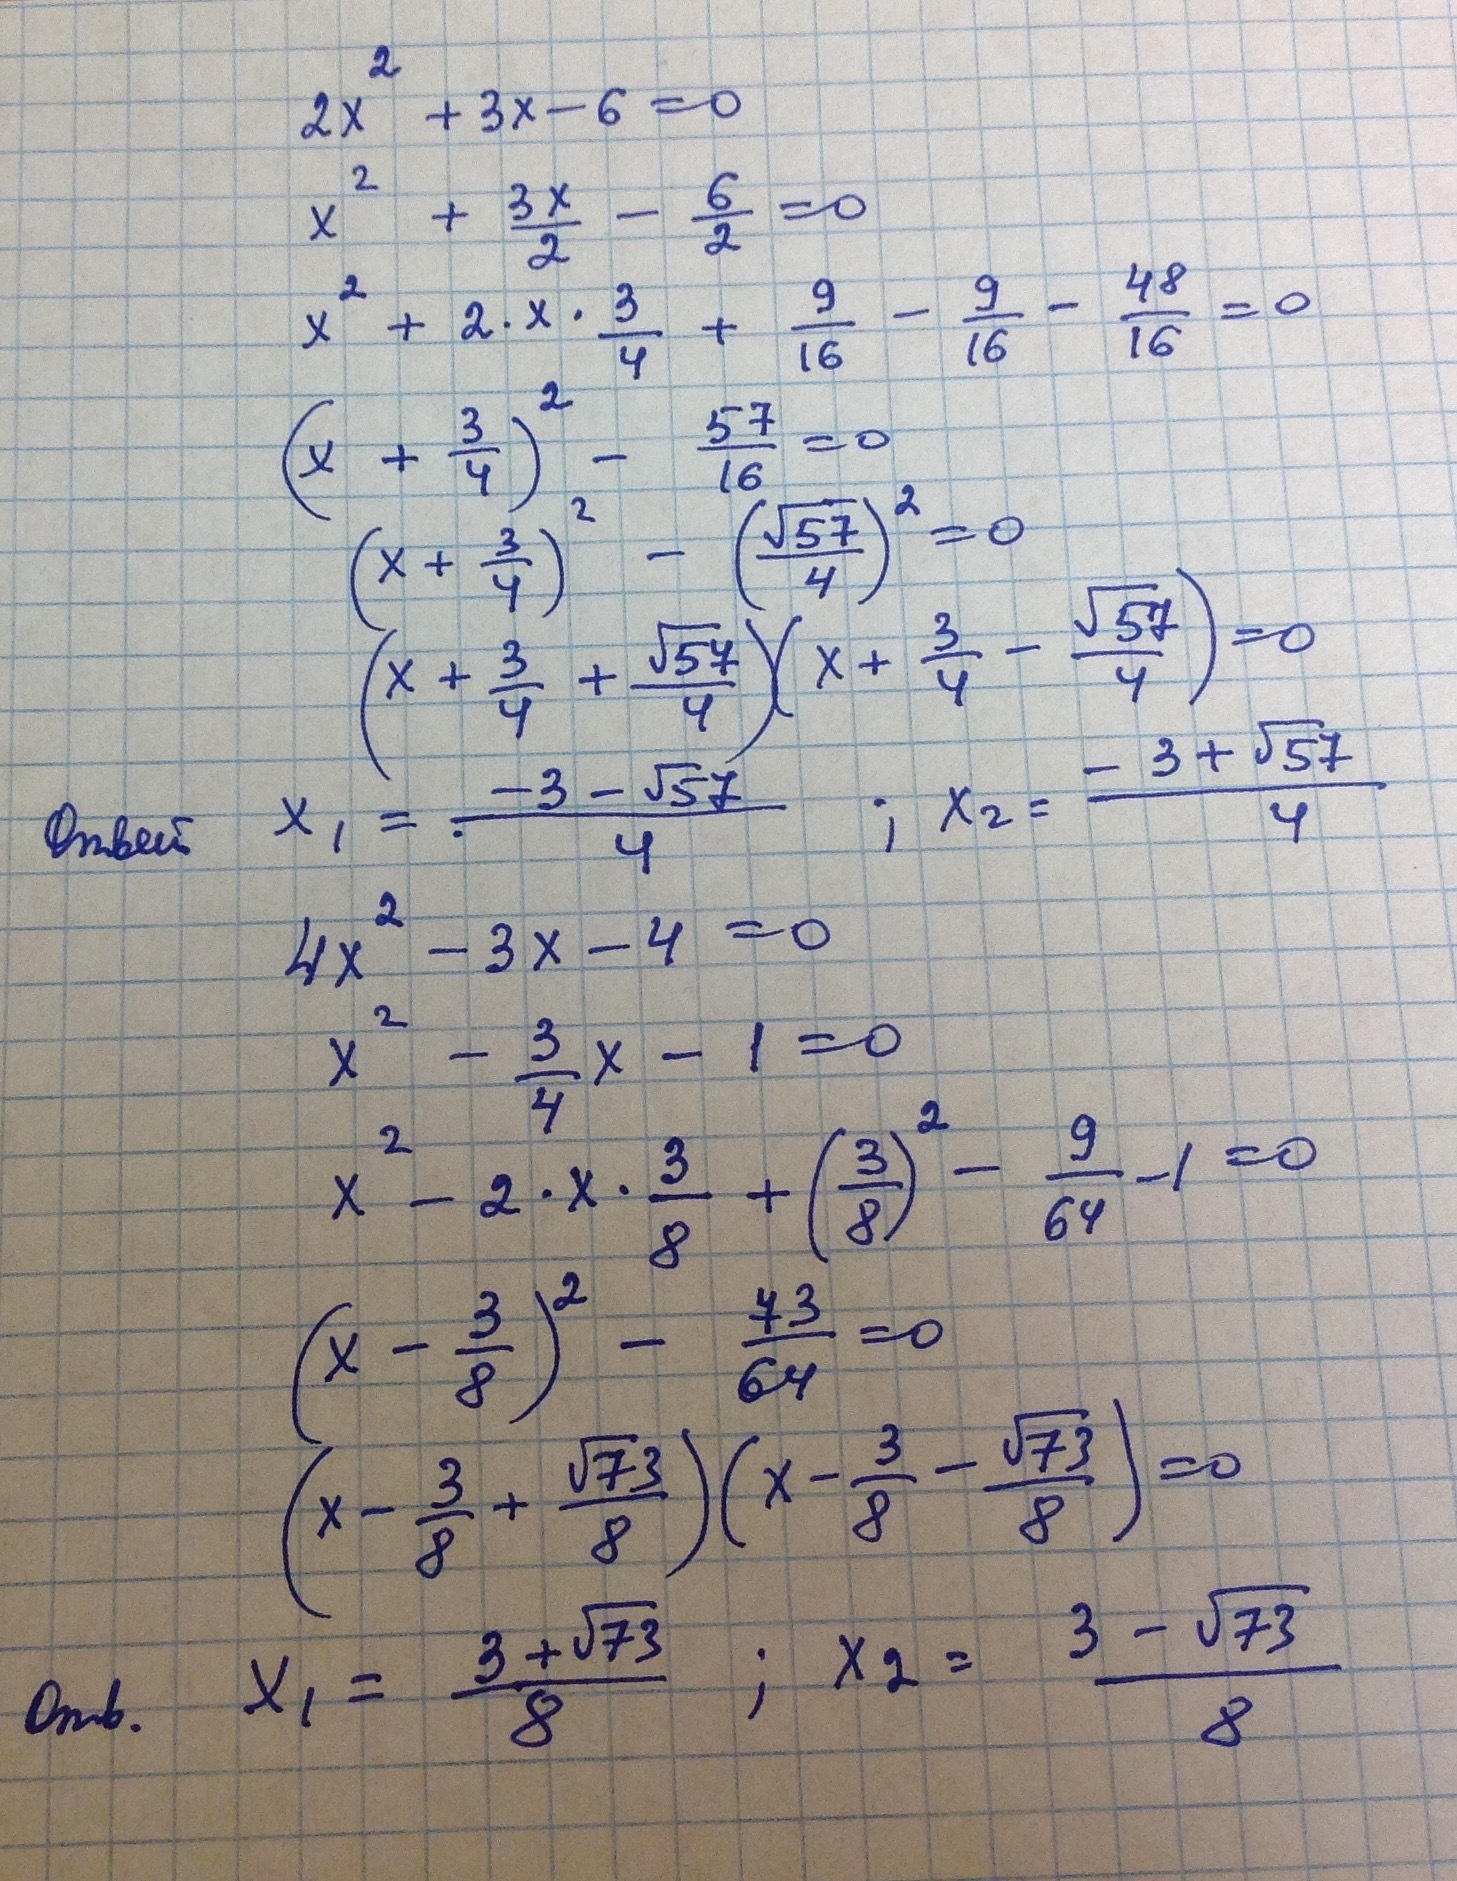 2x² + 3x - 6 = 0
x² + 3x/2 - 6/2 = 0
x² + 2·x·3/4 + 9/16 - 9/16 - 48/16 = 0
(x + 3/4)² - 57/16 = 0
(x + 3/4)² - (√57/4)² = 0
(x + 3/4 + √57/4)(x + 3/4 - √57/4) = 0
Ответ x₁ = (-3 - √57)/4 ; x₂ = (-3 + √57)/4
4x² - 3x - 4 = 0
x² - 3/4 x - 1 = 0
x² - 2·x·3/8 + (3/8)² - 9/64 - 1 = 0
(x - 3/8)² - 73/64 = 0
(x - 3/8 + √73/8)(x - 3/8 - √73/8) = 0
Отв. x₁ = (3 + √73)/8 ; x₂ = (3 - √73)/8